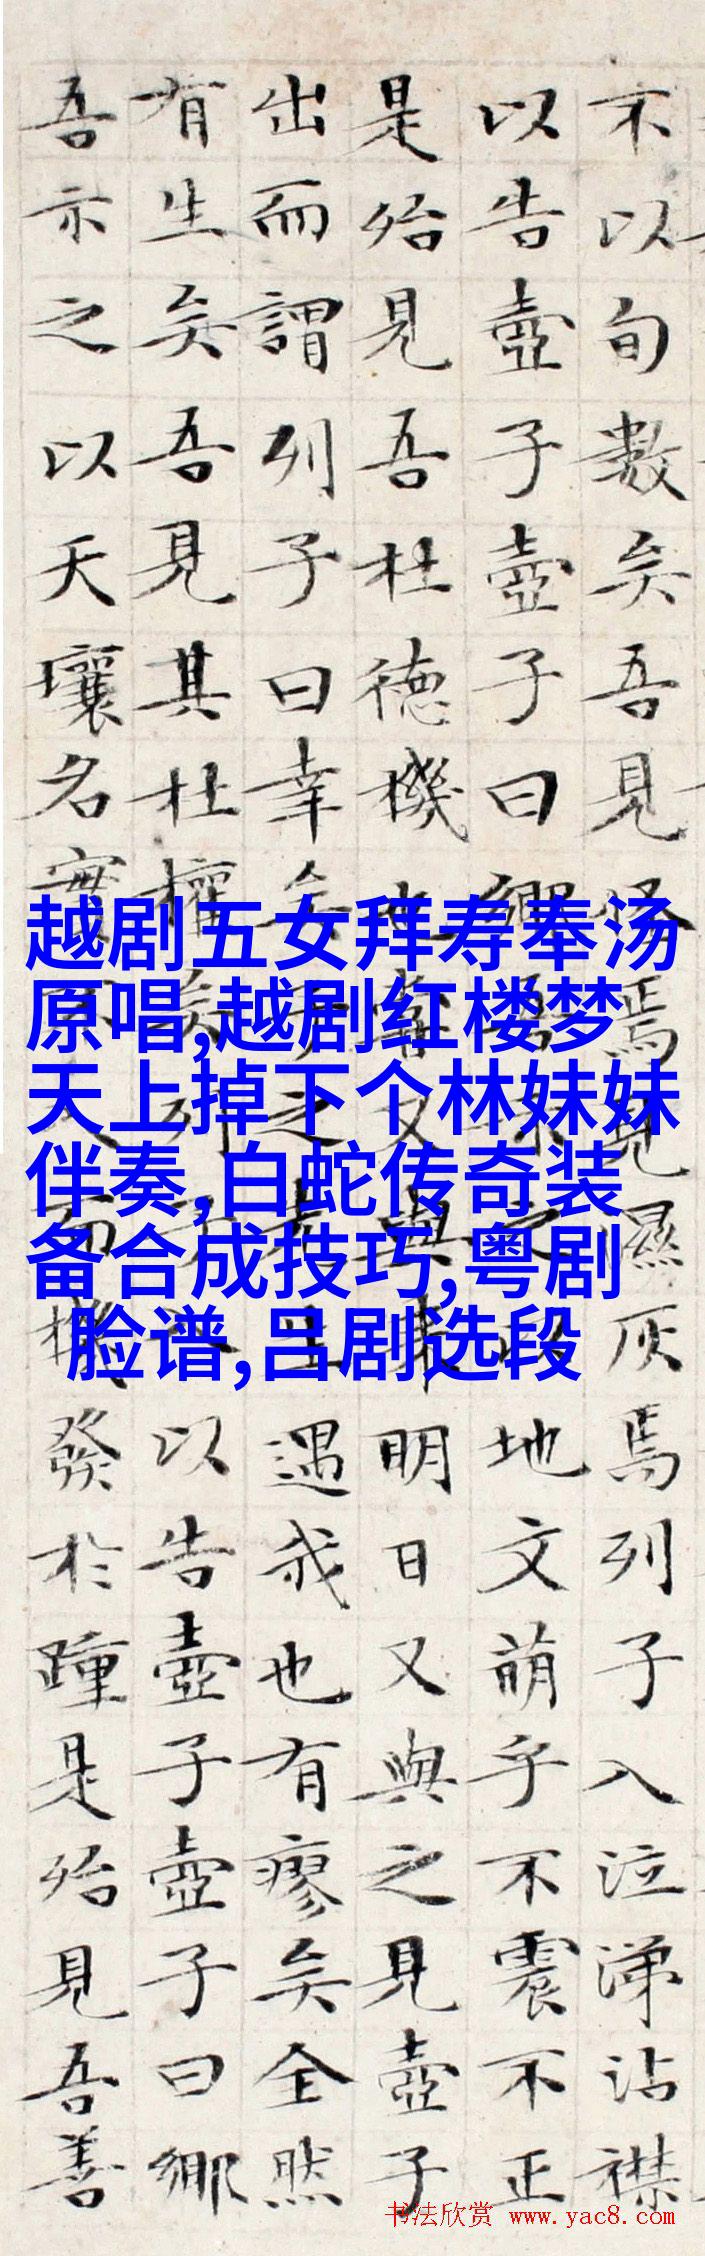 不以旬數矣吾見怪焉見濕灰焉列子入泣涕沾襟
以告壺子壺子曰鄉吾示之以地文萌乎不震不正
是殆見吾杜德機也嘗又與來明日又與之見壺子
出而謂列子曰幸矣子之先生遇我也有瘳矣全然
有生矣吾見其杜權矣列子入以告壺子壺子曰鄉
吾示之以天壤名實不入而機發於踵是殆見吾善
越剧五女拜寿奉汤
原唱,越剧红楼梦
天上掉下个林妹妹
伴奏,白蛇传奇装
备合成技巧,粤剧
脸谱,吕剧选段
书法欣赏 www.yac8.com